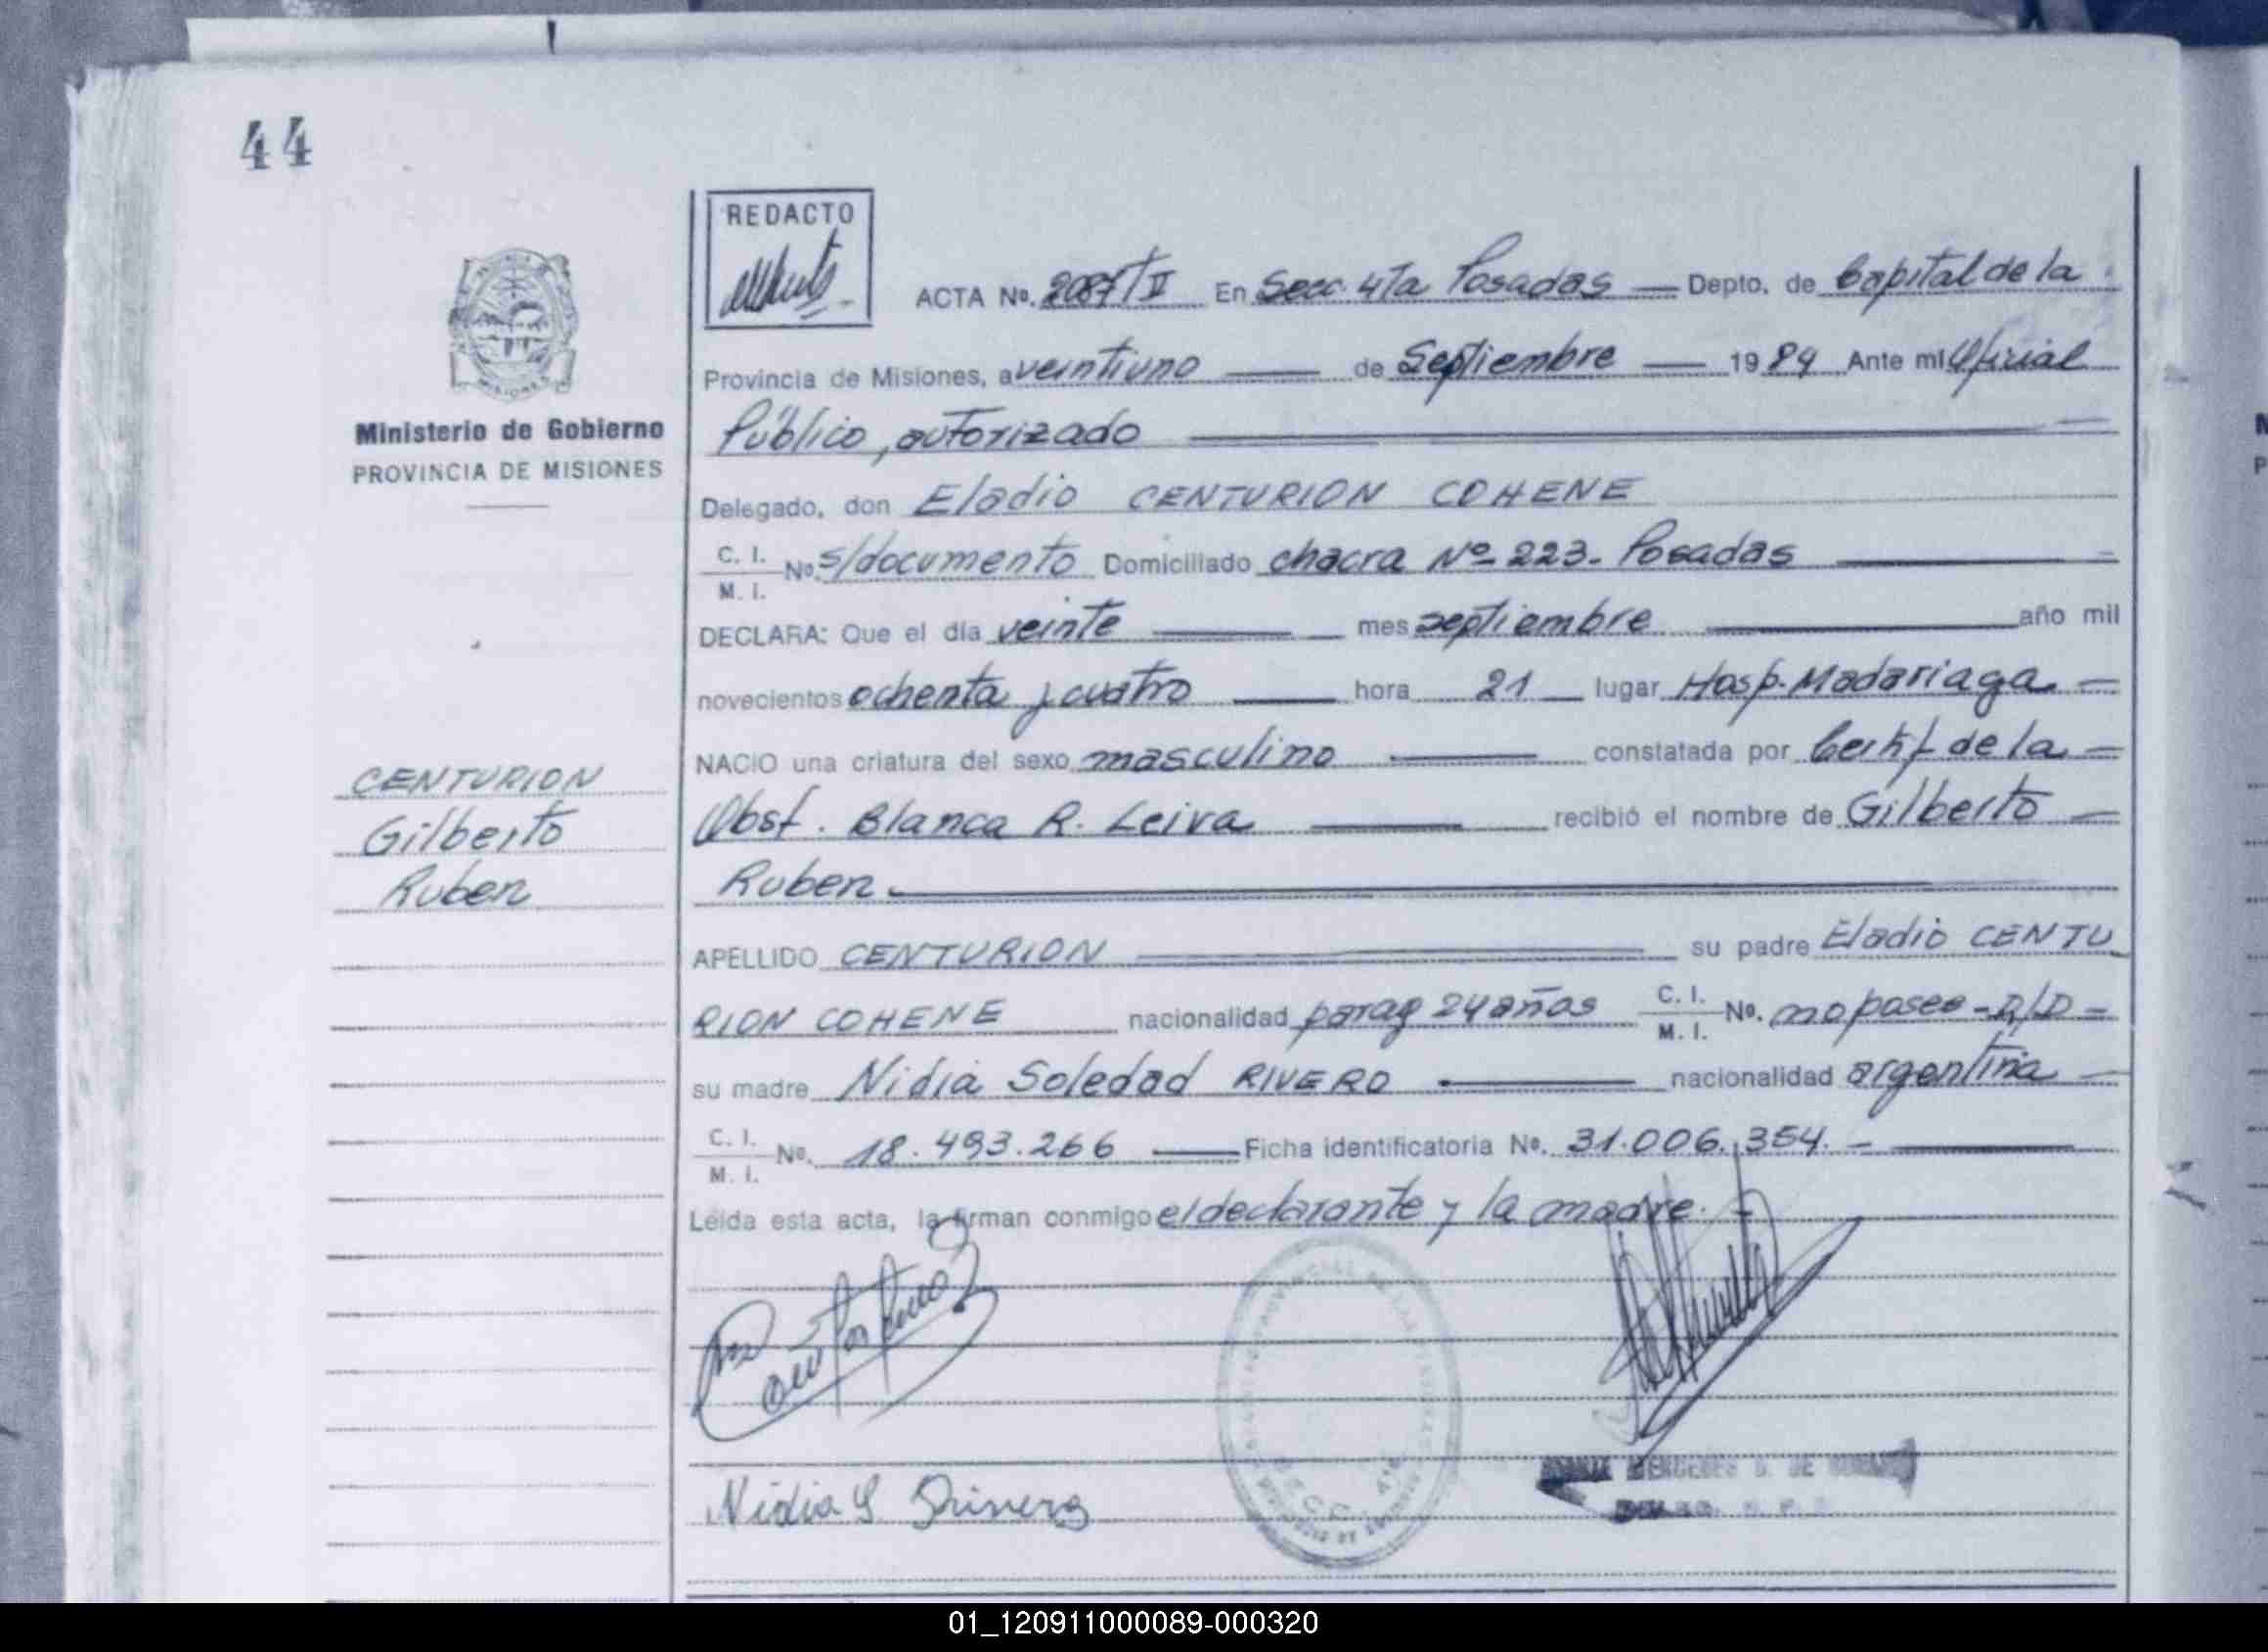 44
REDACTO
ACTA No. 2087/II En Secc. 4Ta Posadas Depto. de Capital de la
Provincia de Misiones, a veintiuno de Septiembre 1984 Ante mi Oficial
Público, autorizado
Delegado, don Eladio CENTURION COHENE
C. I.
M. I. No. s/documento Domiciliado chacra Nº 223. Posadas
DECLARA: Que el día veinte mes septiembre año mil
novecientos ochenta y cuatro hora 21 lugar Hosp. Madariaga
NACIO una criatura del sexo masculino constatada por Certif de la
Obst. Blanca R. Leiva recibió el nombre de Gilberto
Ruben
APELLIDO CENTURION su padre Eladio CENTU
RION COHENE nacionalidad parag 24 años C. I.
M. I. No. no posee - D/D
su madre Nidia Soledad RIVERO nacionalidad argentina
C. I.
M. I. No. 18.493.266 Ficha identificatoria No. 31.006.354.
Leída esta acta, la firman conmigo el declarante y la madre.
Nidia S
SECC. 4ta
MERCEDES
DE
MISIONES
Ministerio de Gobierno
PROVINCIA DE MISIONES
CENTURION
Gilberto
Ruben
01_120911000089-000320